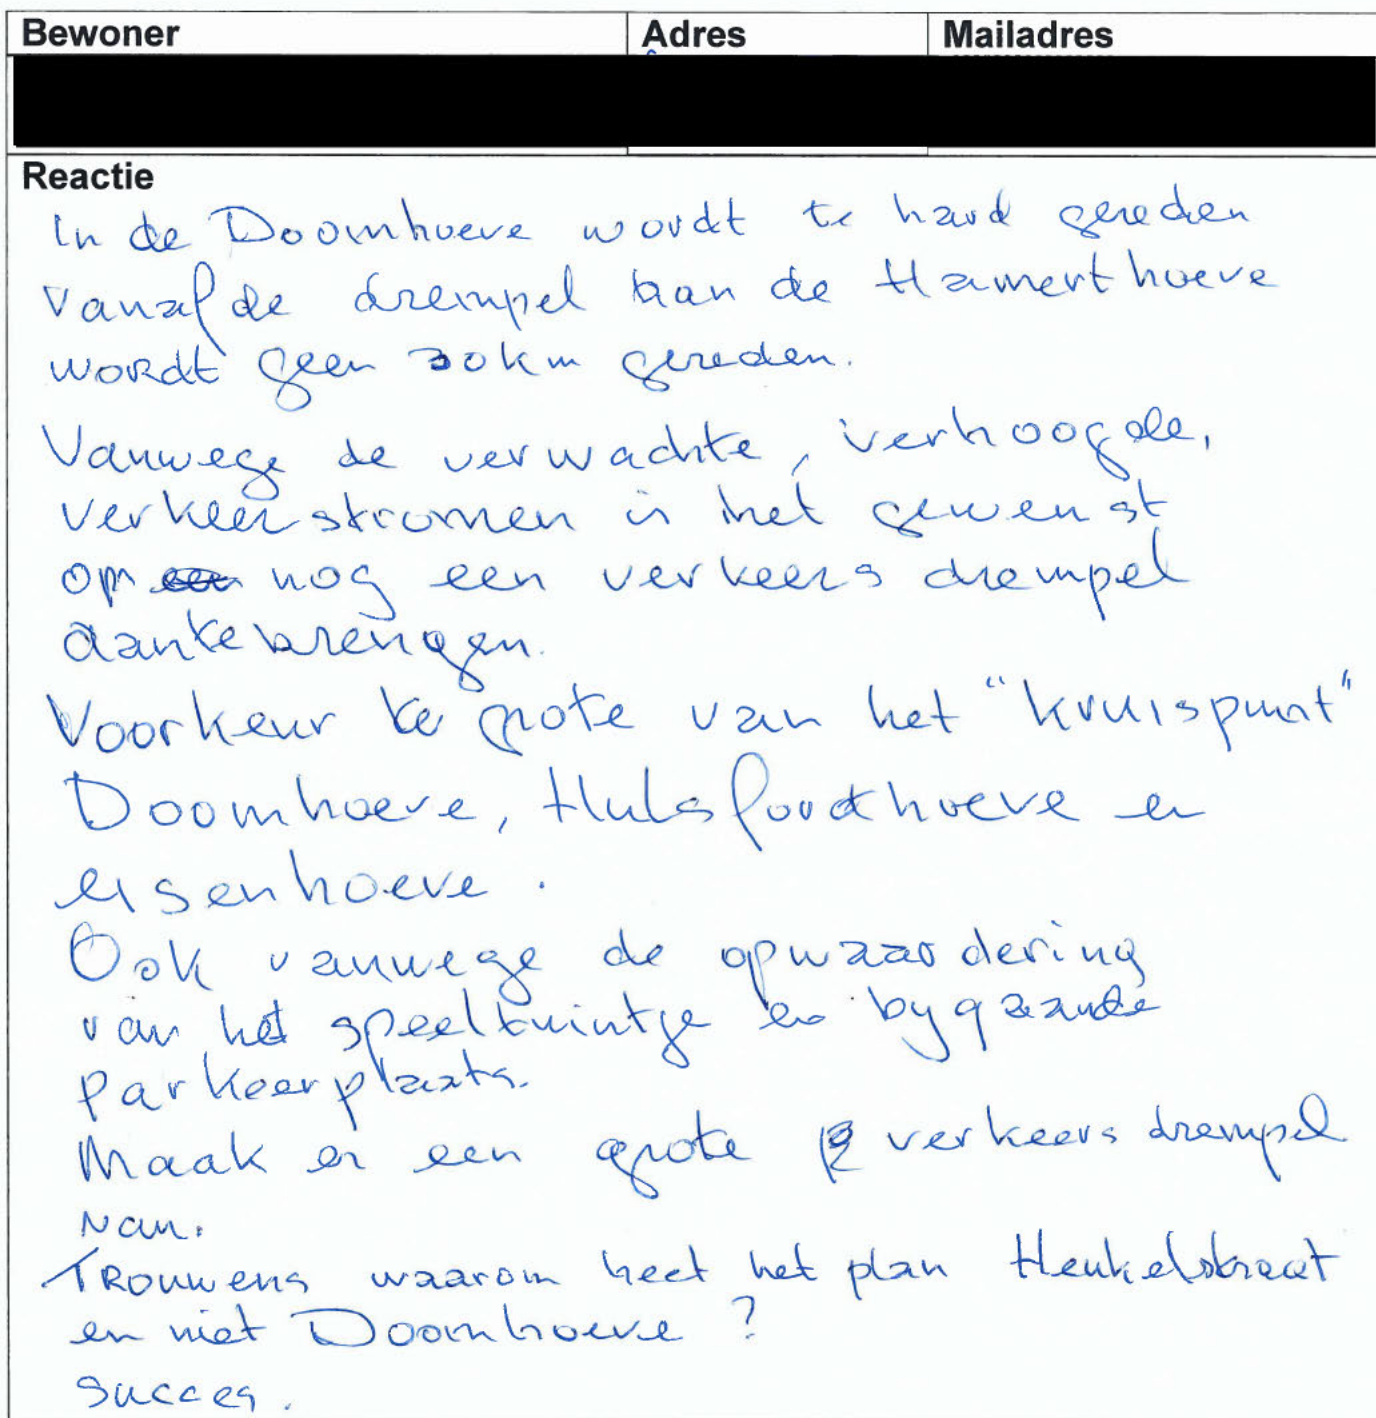 Bewoner Adres Mailadres
Reactie
In de Doornhoeve wordt te hard gereden
vanaf de drempel aan de Hamerthoeve
wordt geen 30 km gereden.
Vanwege de verwachte, verhoogde,
verkeerstromen is het gewenst
om nog een verkeers drempel
aan te brengen.
Voorkeur te grote van het "kruispunt"
Doornhoeve, Hulsfoordhoeve en
eisenhoeve.
Ook vanwege de opwaardering
van het speeltuintje en bygaande
parkeerplaats.
Maak er een grote verkeers drempel
van.
Trouwens waarom heet het plan Henkelstraat
en niet Doornhoeve?
succes.